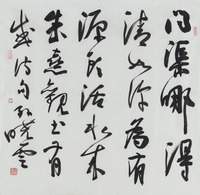 问渠哪得
清如许为有
源头活水来
朱熹观书有
感诗句